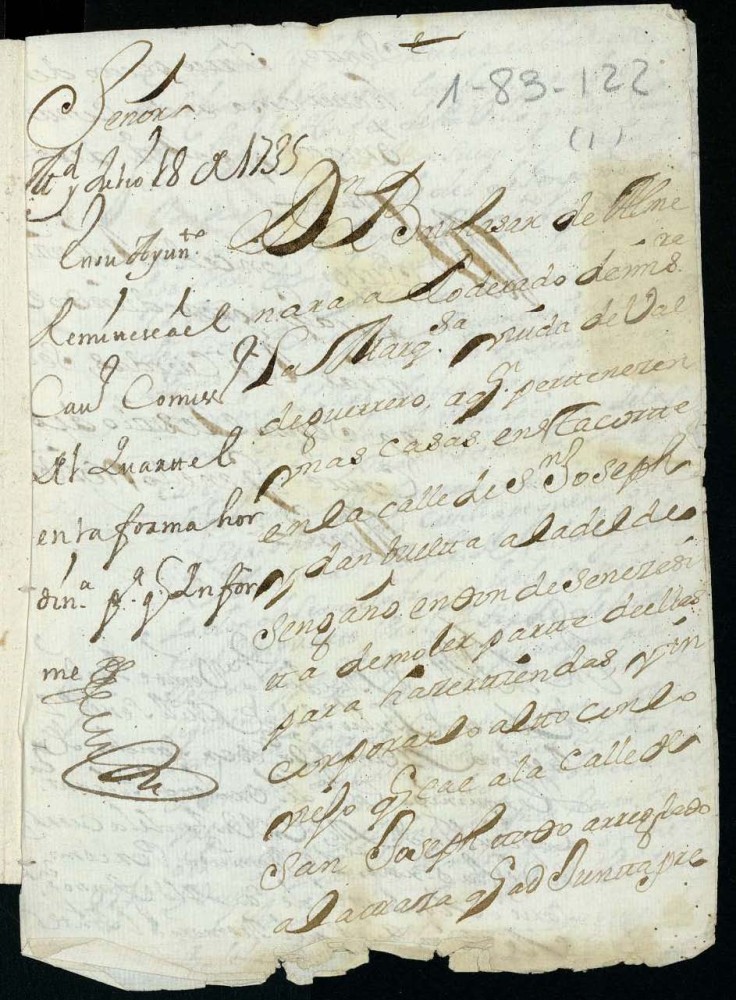 1-83-122
(1)
Señor
Md y Julio 18 de 1735
En su Ayunt.to
Remitese a el
Cauº Comisº
del Quartel
en la forma hor
din.ª p.ª q Infor
me
Dn Balthasar de Alme
nara apoderado de mi s.ra
La Marq.sa viuda de Val
deguerrero, a qn pertenezen
unas casas en estta corte
en la calle de Sn Joseph
y dan buelta a la del de
sengaño, en donde se nezesi
tta demoler partte de ellas
para hazer ttiendas, y in
corporarlo altto con lo
mesmo q cae a la calle de
San Joseph ttodo arreglado
a la traza q ad Juntta pre